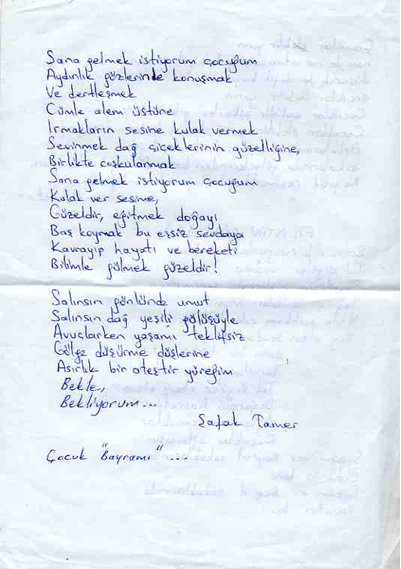 Sana gelmek istiyorum çocuğum
Aydınlık gözlerinde konuşmak
Ve dertleşmek
Cümle alem üstüne
Irmakların sesine kulak vermek
Sevinmek dağ çiçeklerinin güzelliğine,
Birlikte coşkulanmak
Sana gelmek istiyorum çocuğum
Kulak ver sesime,
Güzeldir, eğitmek doğayı
Baş koymak bu eşsiz sevdaya
Kavrayıp hayatı ve bereketi
Bilimle gülmek güzeldir!
Salınsın gönlünde umut
Salınsın dağ yeşili gülüşüyle
Avuçlarken yaşamı teklifsiz
Gölge düşürme düşlerine
Asırlık bir ateştir yüreğim
Bekle,
Bekliyorum...
Şafak Tamer
Çocuk "Bayramı"...